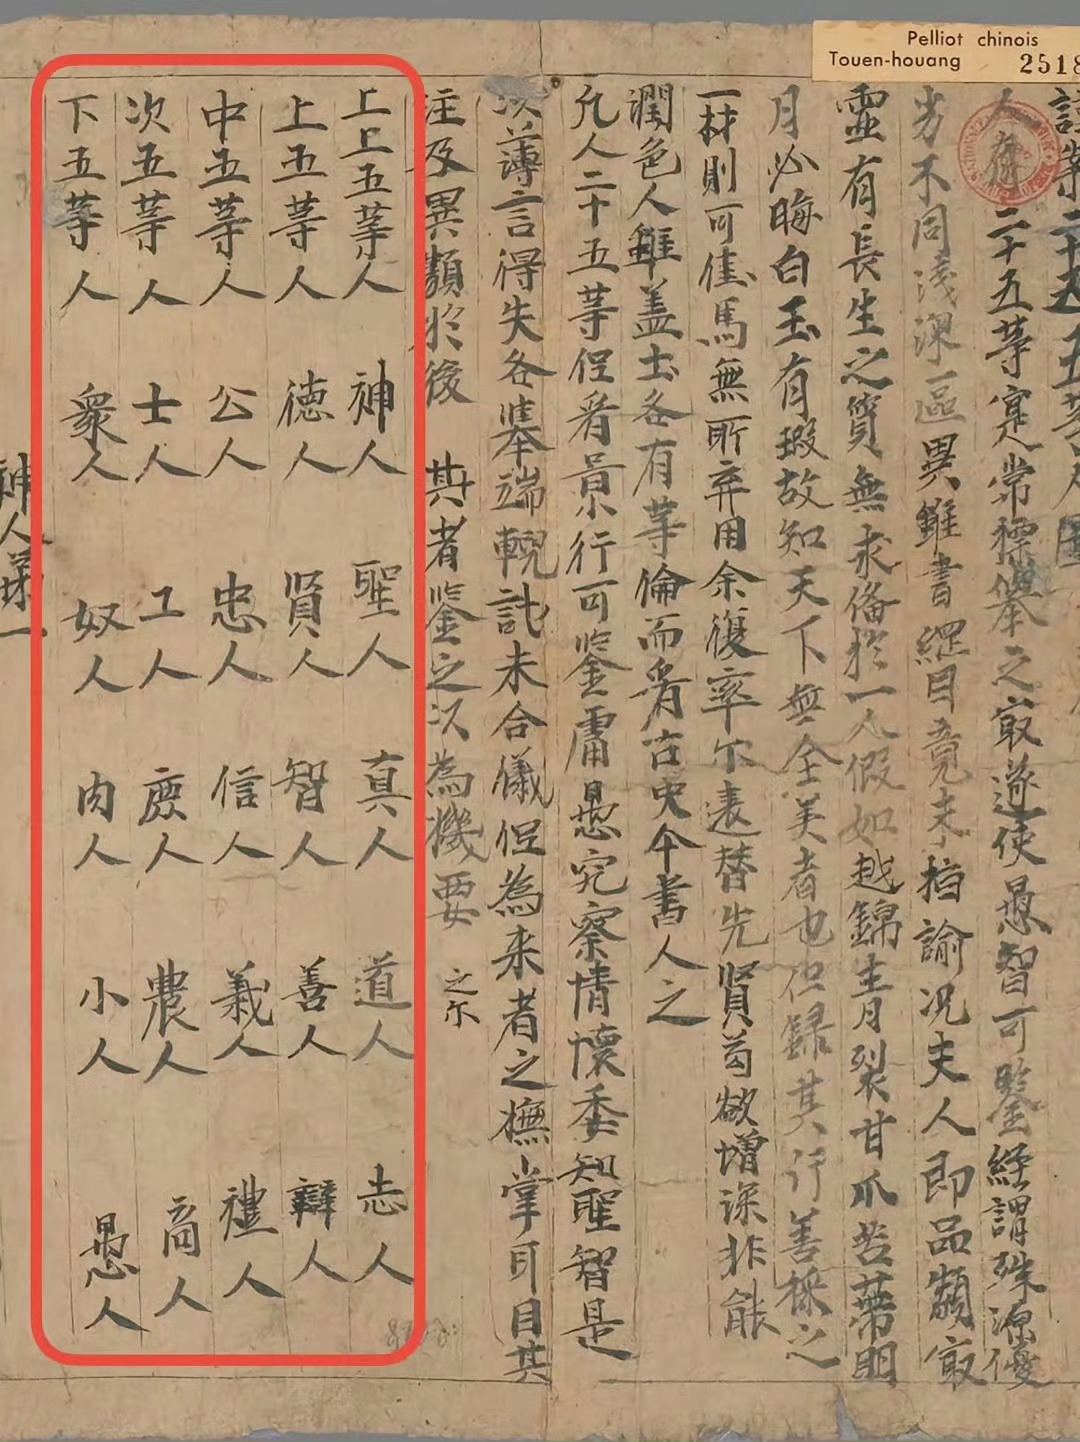 Pelliot chinois
Touen-houang 2518
二十五等人圖
二十五等寔常標舉之㝡遂使愚智可鑒經謂殊源優
劣不同淺深區異雖書綱目竟未指諭况夫人即品類㝡
靈有長生之質無求俻於一人假如越錦生月裂甘爪苦蒂明
月必晦白玉有瑕故知天下無全美者也但録其行善採之
一材則可佳馬無所弃用余復率尔表替先賢苟欲增深非能
潤色人雖盖士各有等倫而肴古史今書人之
凢人二十五等但肴景行可鑒庸愚究察情懷委知聖智是
以薄言得失各舉端輗託未合儀但為来者之撫掌耳目其
注及異類於後 其者鑒之以為機要 之尔
上上五等人 神人 聖人 真人 道人 志人
上五等人 德人 賢人 智人 善人 辯人
中五等人 公人 忠人 信人 義人 禮人
次五等人 士人 工人 庶人 農人 商人
下五等人 衆人 奴人 肉人 小人 愚人
神人第一